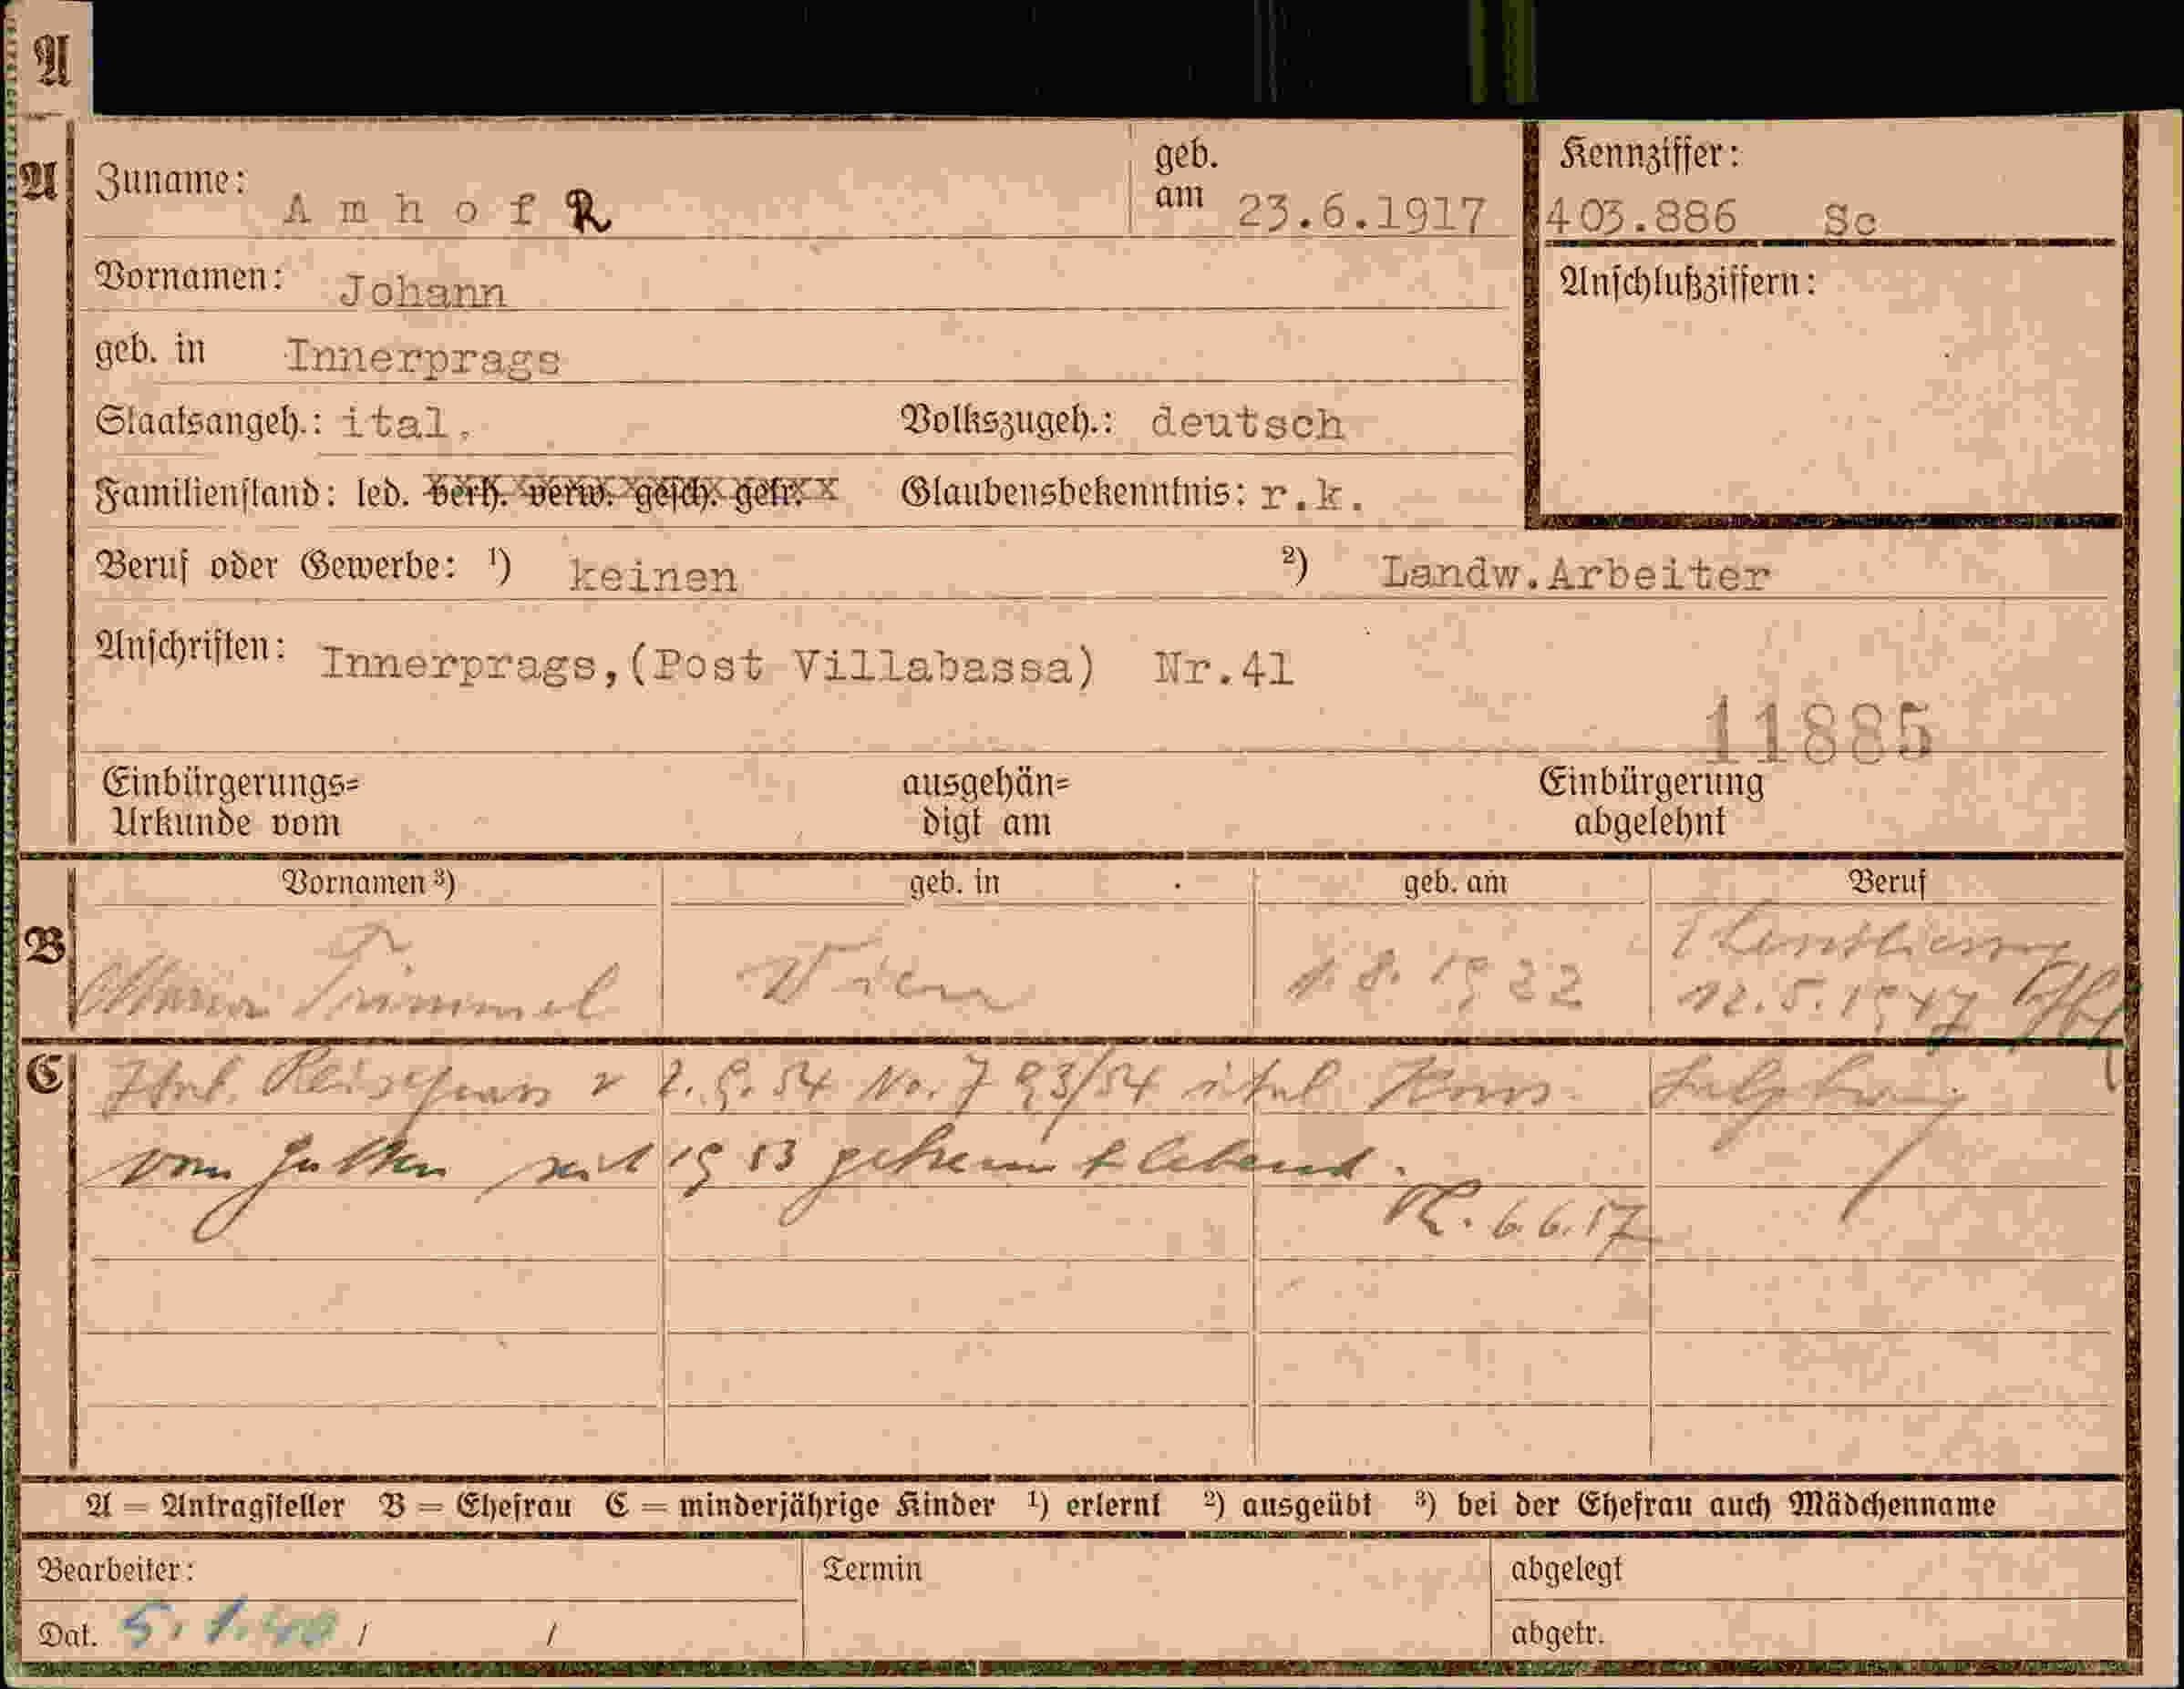 A
A
Zuname: Amhof R
geb. am 23.6.1917
Kennziffer:
403.886 Sc
Vornamen: Johann
Anschlußziffern:
geb. in Innerprags
Staatsangeh.: ital. Volkszugeh.: deutsch
Familienstand: led. verh. verw. gesch. getr. Glaubensbekenntnis: r.k.
Beruf oder Gewerbe: ¹) keinen ²) Landw.Arbeiter
Anschriften: Innerprags,(Post Villabassa) Nr.41
11885
Einbürgerungs= Urkunde vom
ausgehän= digt am
Einbürgerung abgelehnt
Vornamen ³) geb. in geb. am Beruf
B
Maria Trimmel Wien 1.8.1922
12.5.1947
C
Ital. Reisepass v 2.9.54 No. 793/54 ital Kons. Salzburg
vom Gatten seit 1953 getrennt lebend.
6.6.57
A = Antragsteller B = Ehefrau C = minderjährige Kinder ¹) erlernt ²) ausgeübt ³) bei der Ehefrau auch Mädchenname
Bearbeiter: Termin abgelegt
Dat. 5.1.40 / / abgetr.